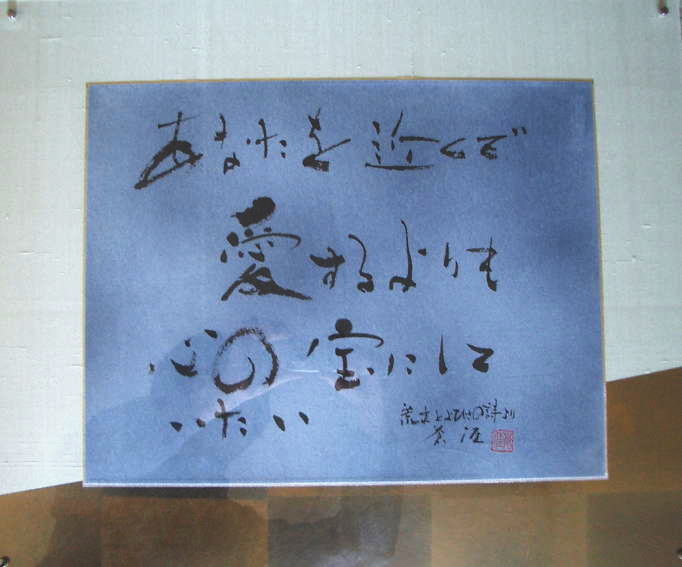 あなたを近くで
愛するよりも
心の宝にして
いたい
荒木とよひさの詩より